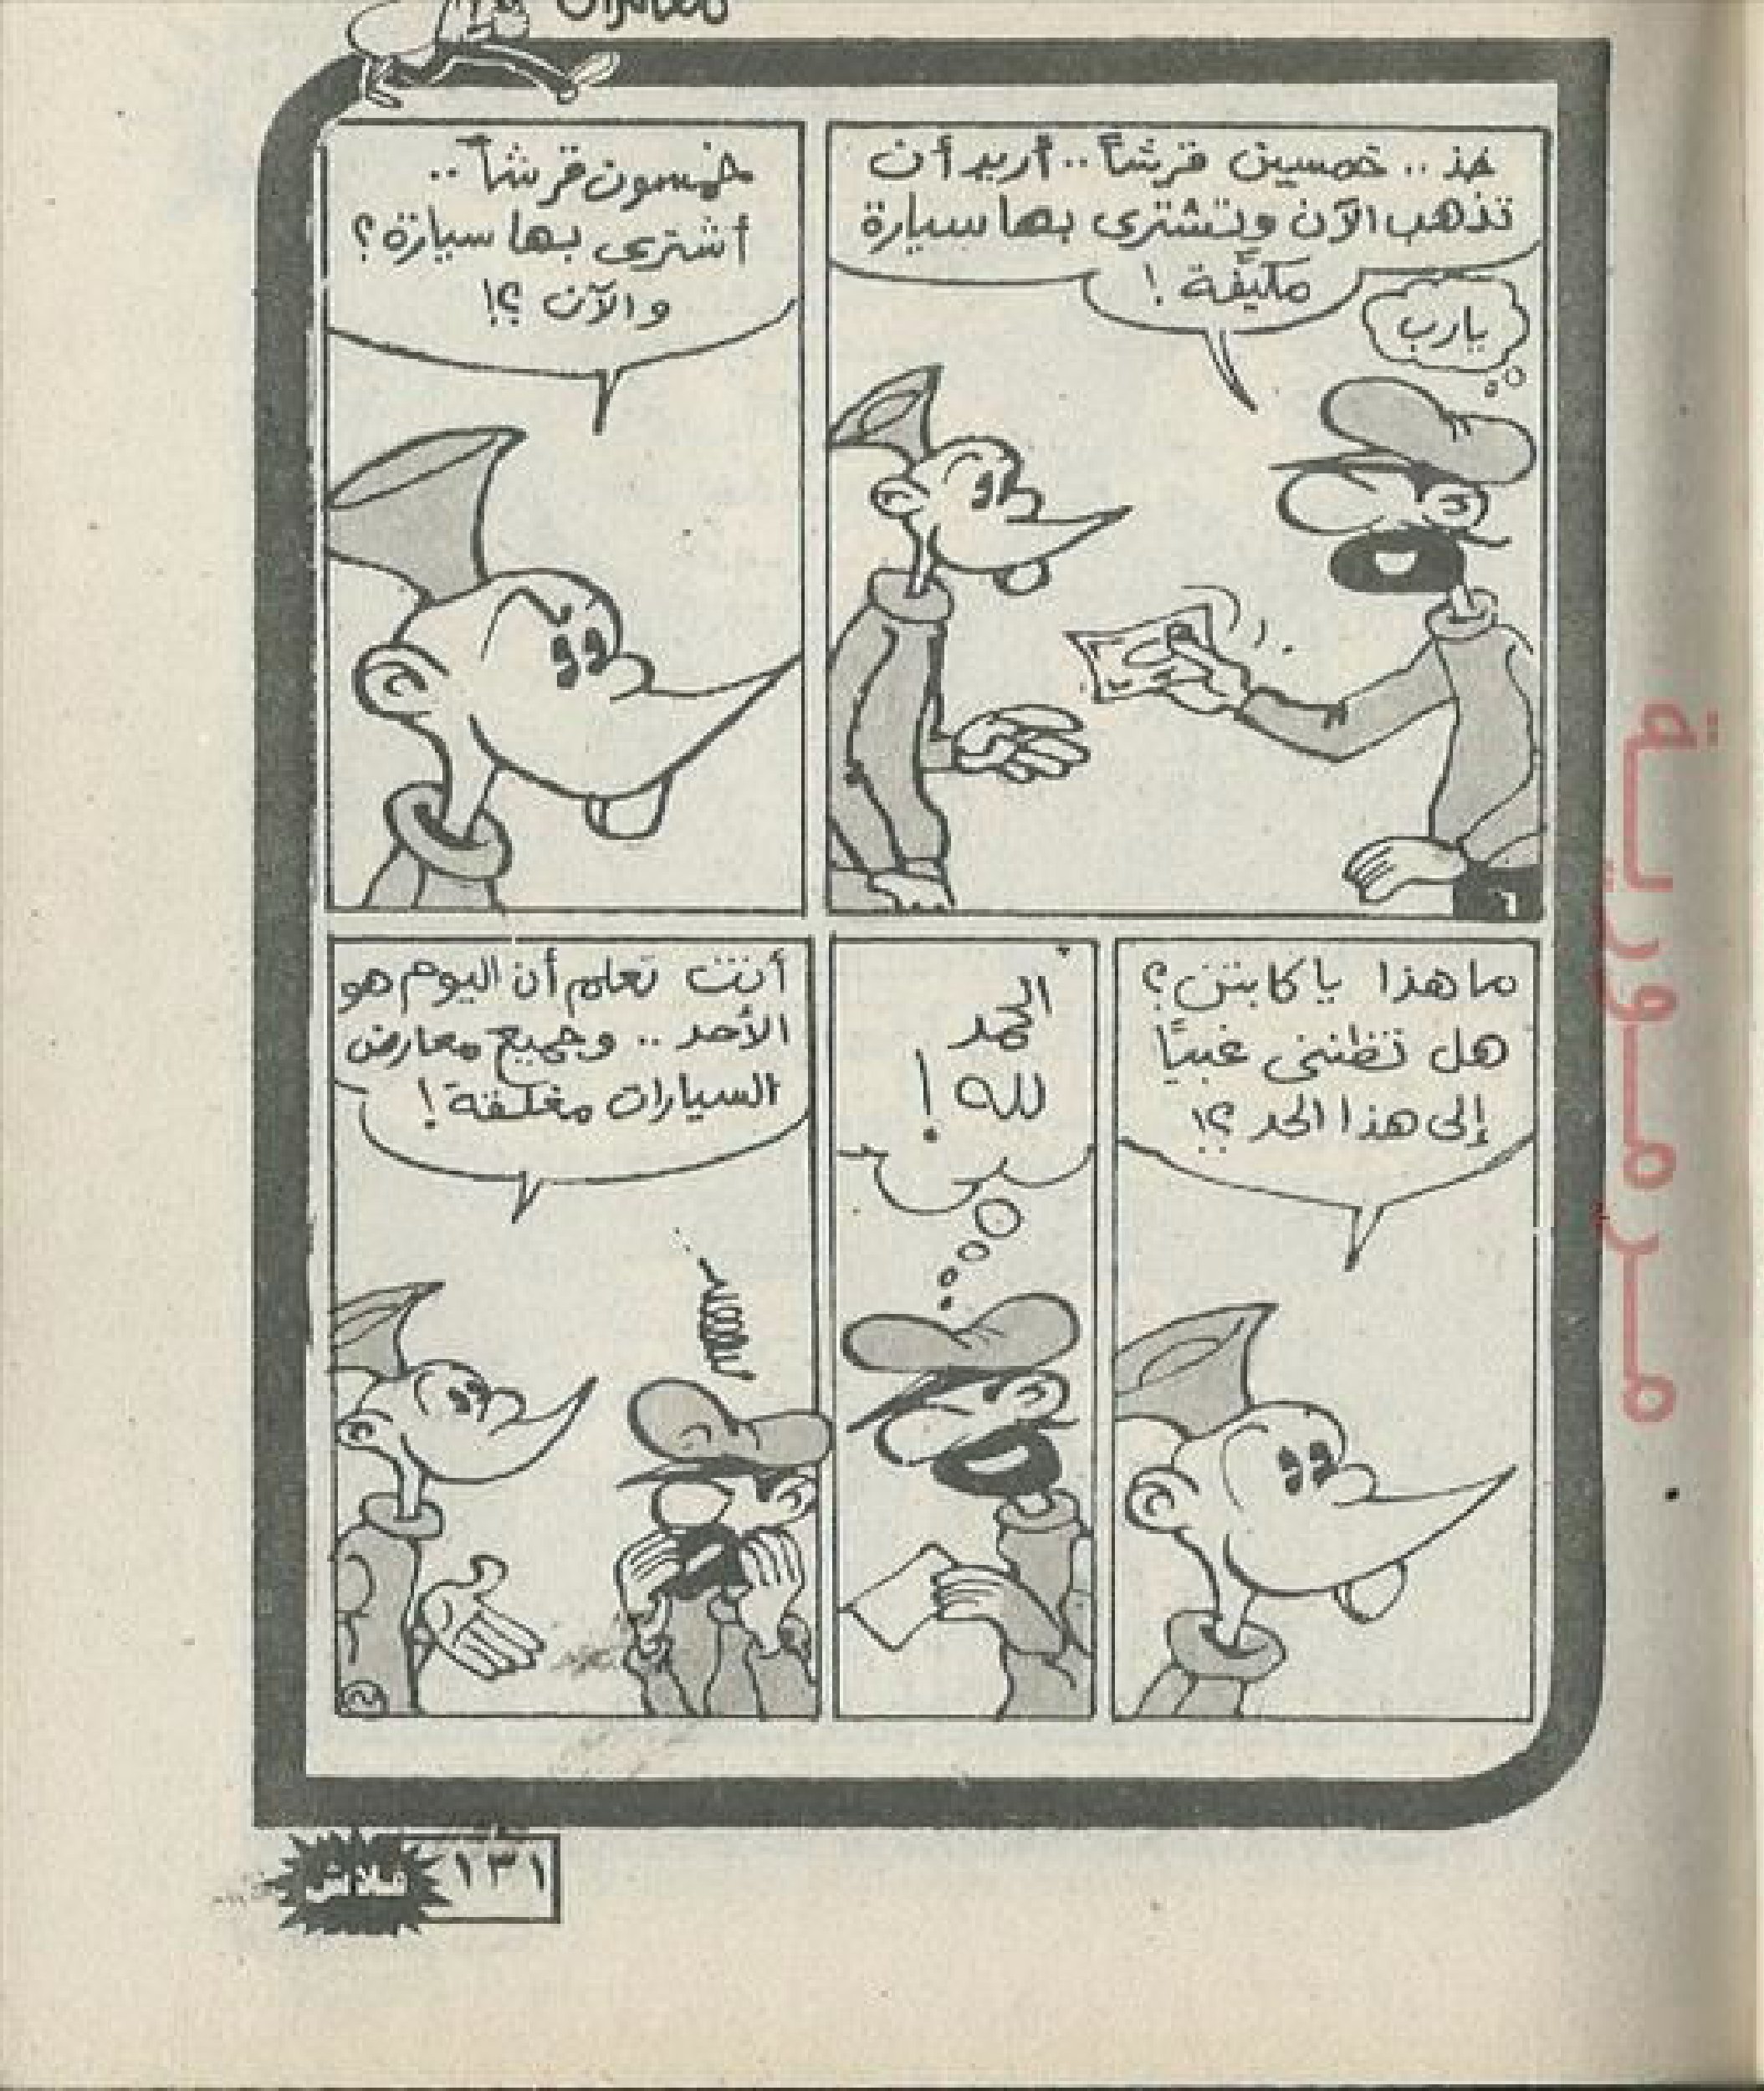 خذ .. خمسين قرشاً .. أريد أن
تذهب الآن وتشترى بها سيارة
مكيفة !
يارب
٦
خمسون قرشاً ..
أشترى بها سيارة ؟
والآن ؟!
ما هذا يا كابتن ؟
هل تظننى غبياً
إلى هذا الحد ؟!
الحمد
لله !
أنت تعلم أن اليوم هو
الأحد .. وجميع معارض
السيارات مغلقة !
١٣١
فلاش
مرمورية